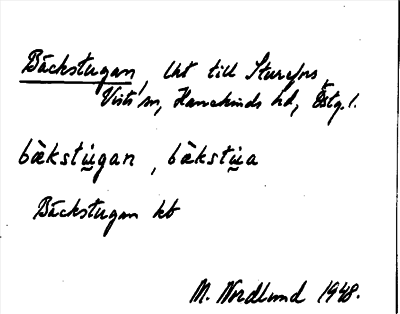 Bäckstugan, lht till Sturefors
Vists sn, Hanekinds hd, Östg. l.
bäkstu̇gan, bäkstu̇a
Bäckstugan kb
M. Nordlund 1948.